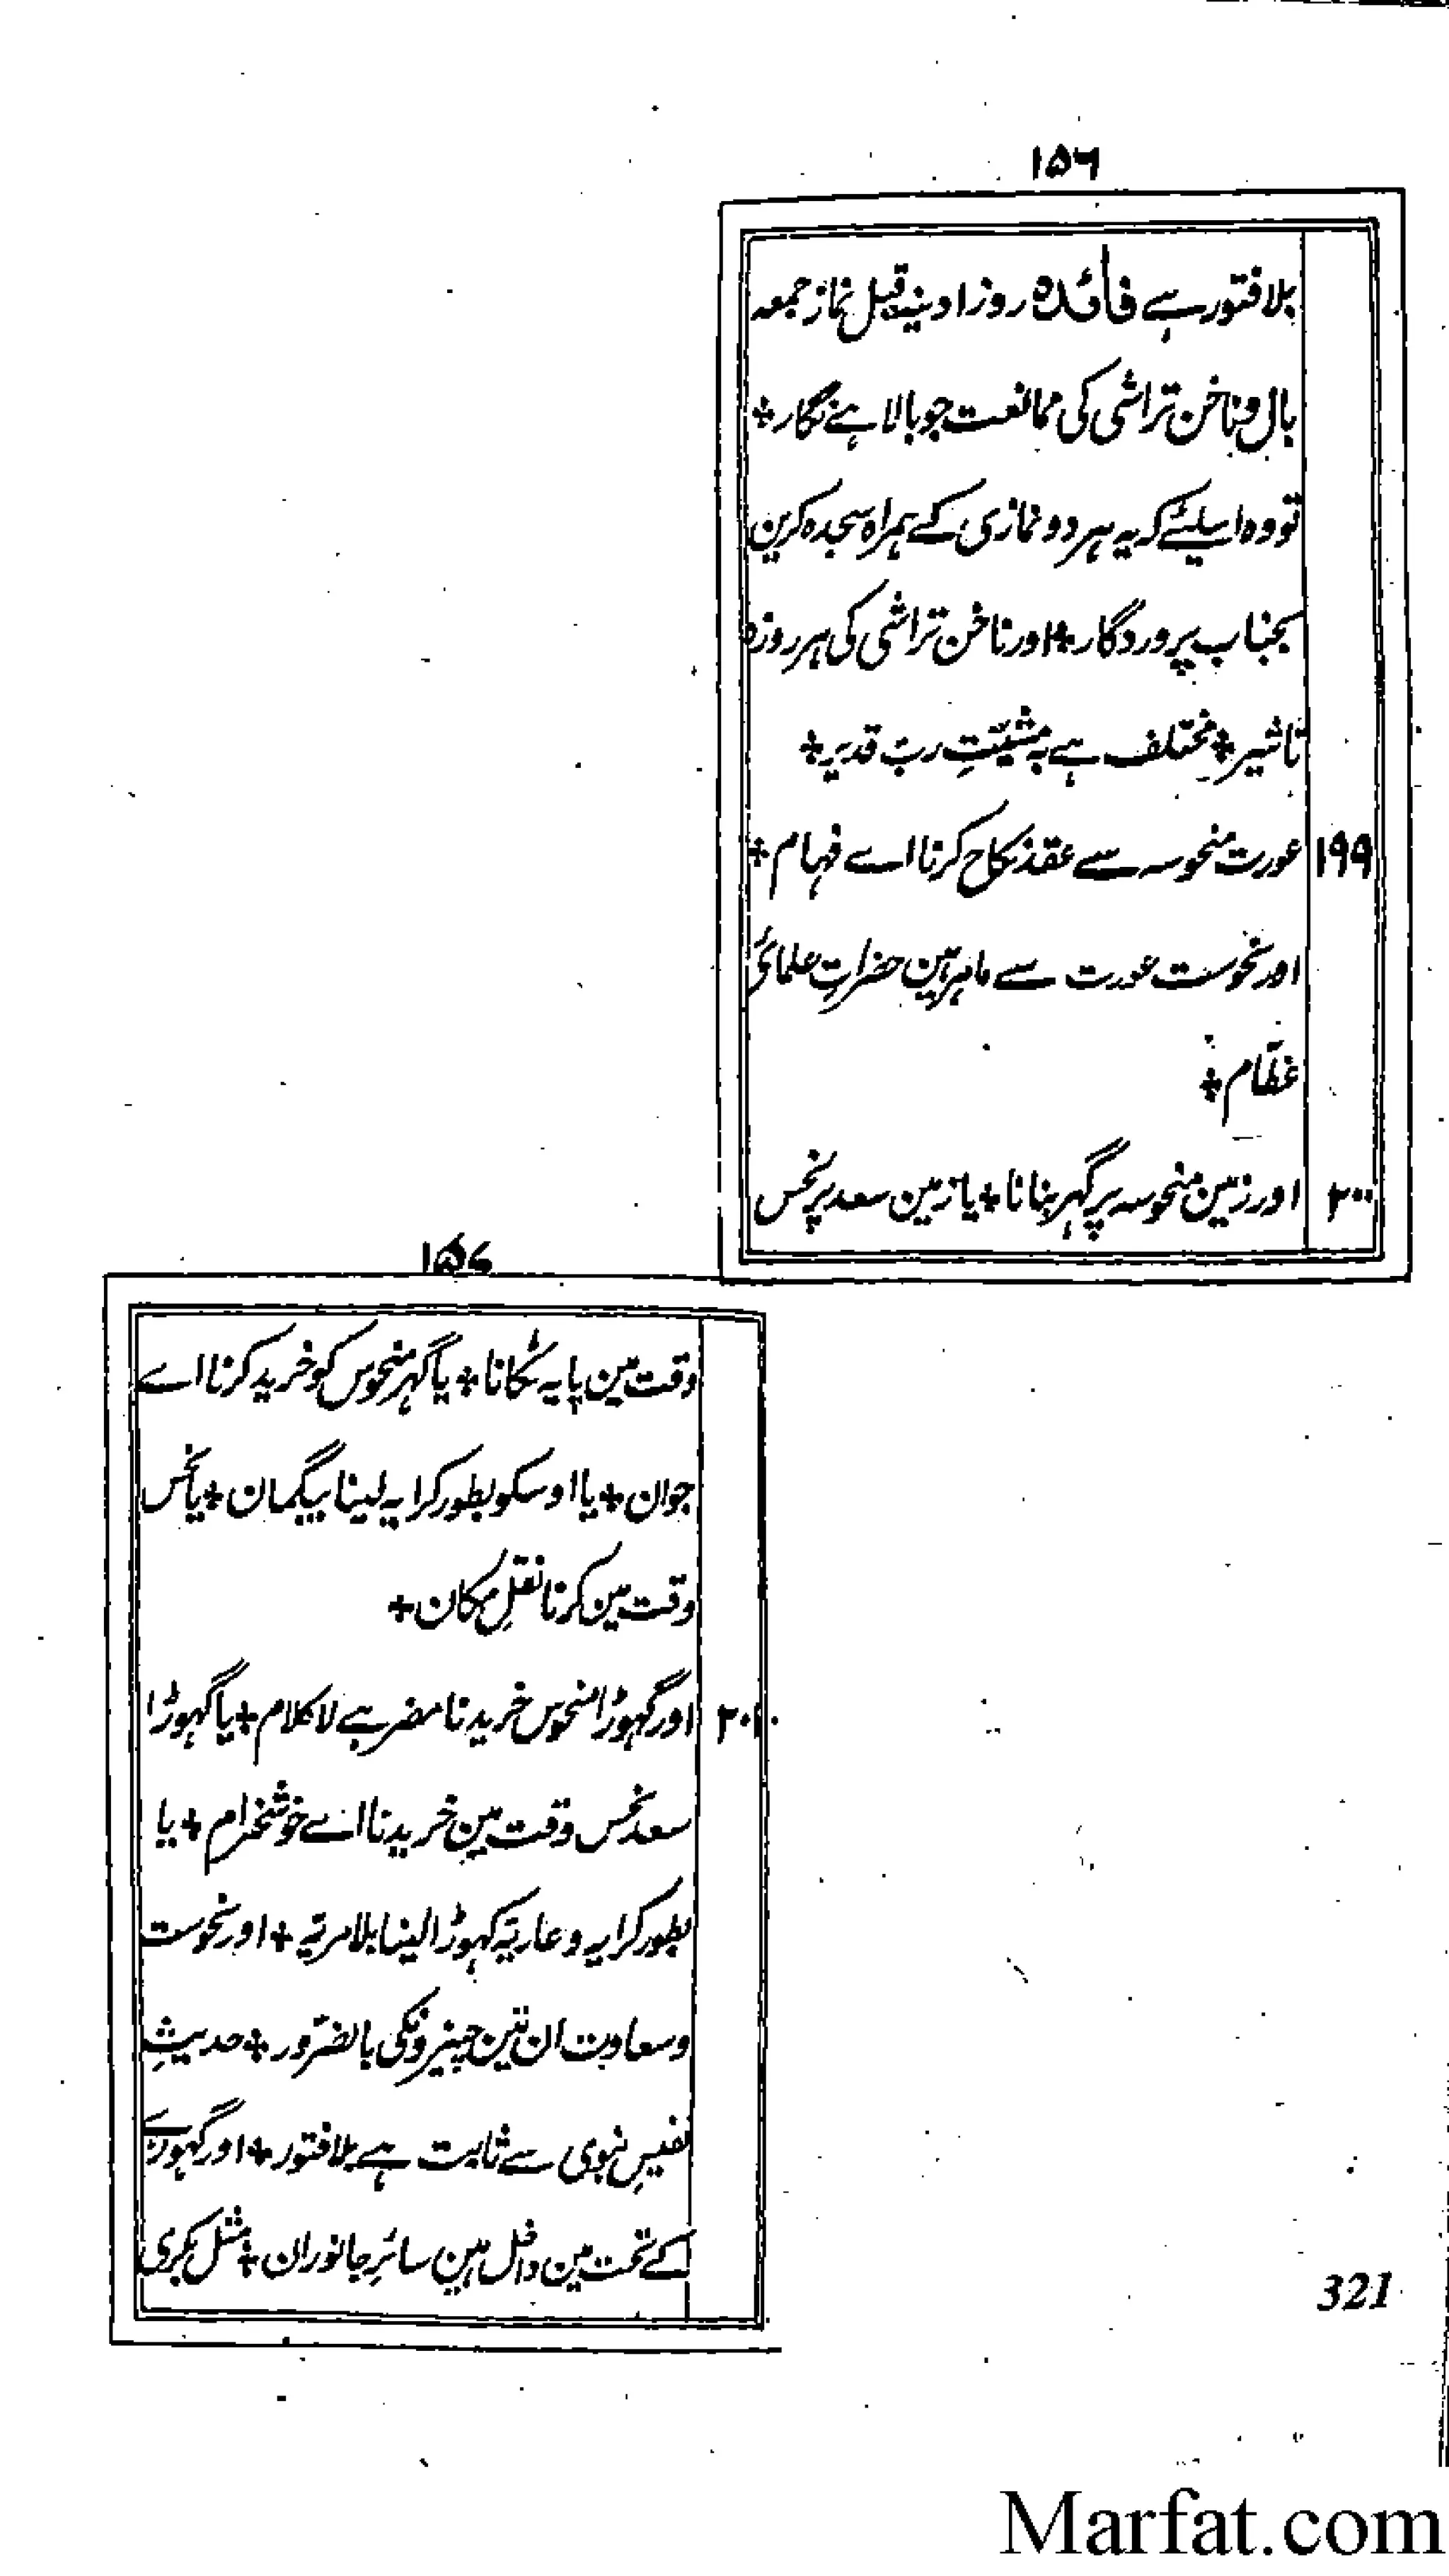 ۱۵۶
بلا فتور ہے فائدہ روز ادینہ قبل نماز جمعہ
بال و ناخن تراشی کی ممانعت جو بالا ہے نگار +
تو وہ اسیلئے کہ یہ ہر دو نمازی کے ہمراہ سجدہ کرین
بجناب پروردگار + اور ناخن تراشی کی ہر روزہ
تاثیر + مختلف ہے بہ مشیّتِ ربّ قدیر +
۱۹۹ عورت منحوسہ سے عقد نکاح کرنا اے فہام +
اور نحوست عورت سے ماہر ہین حضراتِ علمائ
عظّام +
۲۰۰ اور زمین منحوسہ پر گہر بنانا + یا زمین سعد پر نحس
۱۵۷
وقت مین پایہ ٹکانا + یا گہر منحوس کو خرید کرنا اے
جوان + یا اوسکو بطور کرایہ لینا بیگمان + یا نحس
وقت مین کرنا نقلِ مکان +
۲۰۱ اور گہوڑا منحوس خریدنا مضر ہے لا کلام + یا گہوڑا
سعد نحس وقت مین خریدنا اے خوشخرام + یا
بطور کرایہ و عاریۃ گہوڑا لینا بلا مریۃ + اور نحوست
و سعادت ان تین چیزونکی بالضرّور + حدیثِ
نفیسِ نبوی سے ثابت ہے بلا فتور + اور گہوڑے
کے تحت مین داخل ہین سائر جانوران + مثل بکری
321
Marfat.com